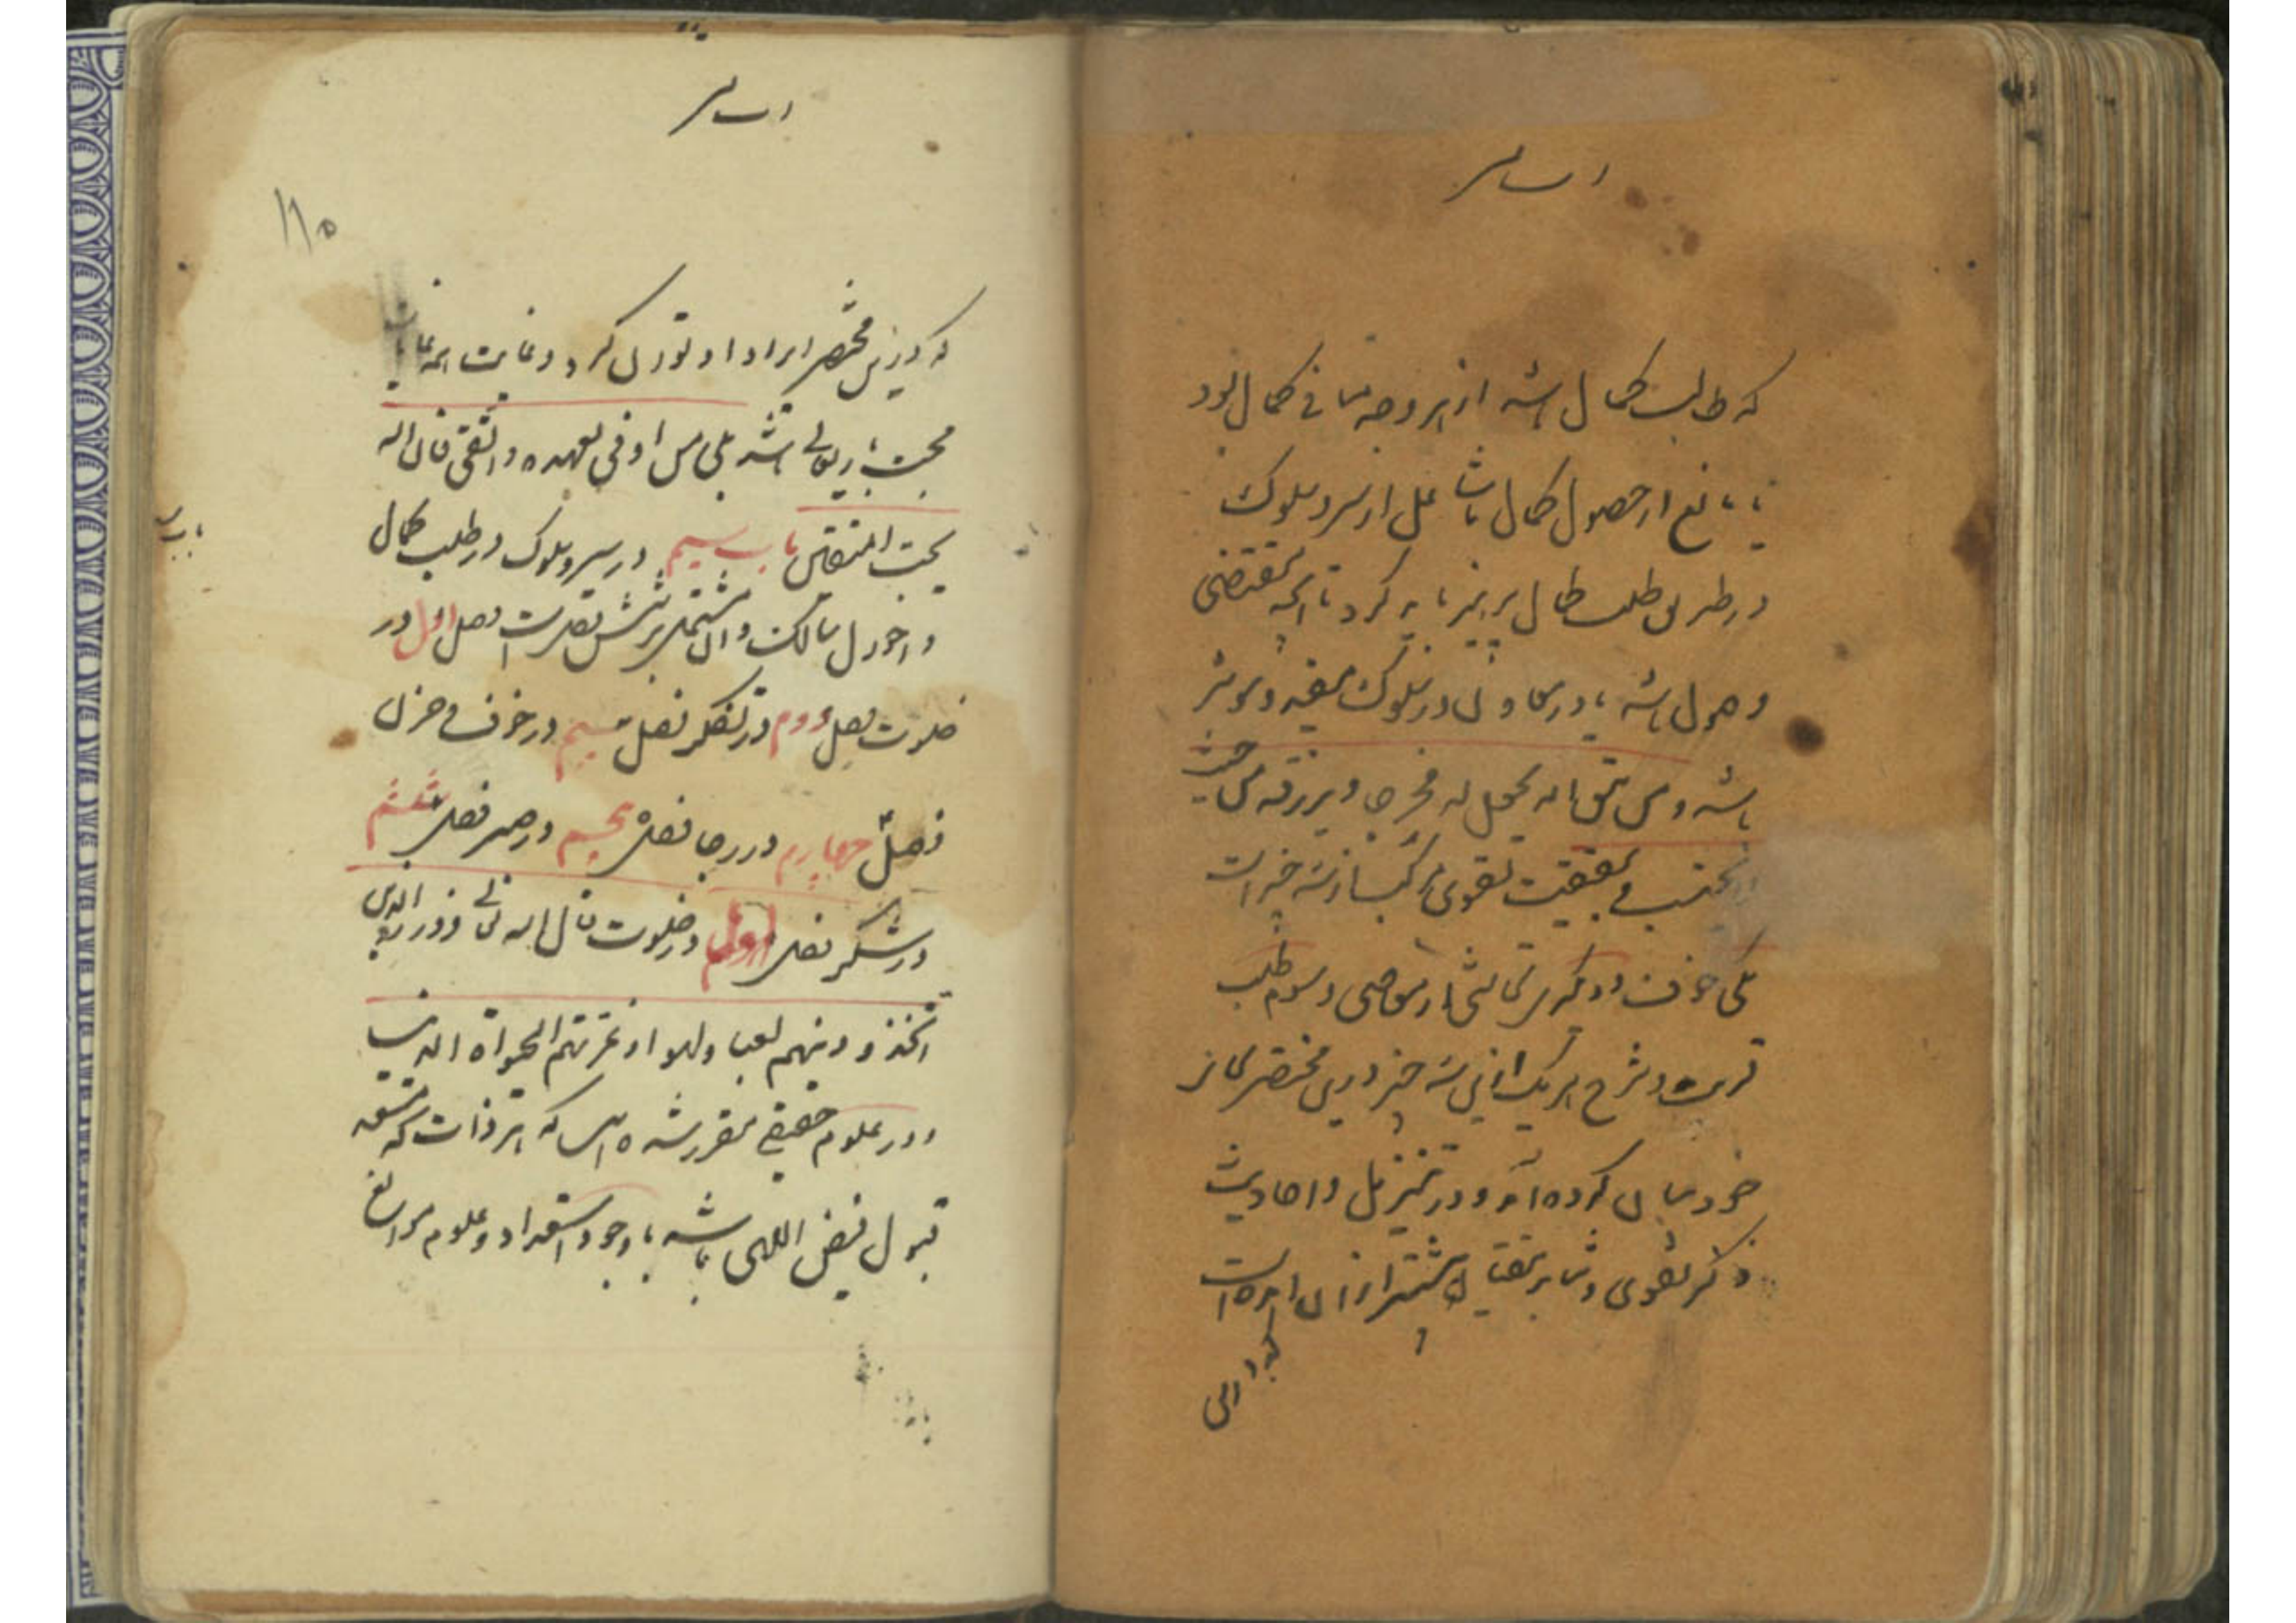 که طالب کمال باشد از هر وجه منافی کمال بود
یا مانع از حصول کمال باشد عمل از سیر و سلوک
در طریق طلب کمال پرهیز باید کرد تا آنچه مقتضی
وصول باشد یا در معاونت در سلوک مفید و موثر
باشد و من یتق الله یجعل له مخرجا و یرزقه من حیث
لا یحتسب و بحقیقت تقوی مرکب از سه چیز است
یکی خوف و دوم تحاشی از معاصی و سوم طلب
قربت و شرح هر یک ازین سه چیز درین مختصر بجای
خود بیان کرده آید و در تنزیل و احادیث
ذکر تقوی و ثنا بر متقیان بیشتر از ان امده است
که درین
۱۱۵
که درین مختصر ایراد او توان کرد و غایت همه غایات
محبت باریتعالی باشد بلی من اوفی بعهده و اتقی فان الله
یحب المتقین باب سیم در سیر و سلوک در طلب کمال
و احوال سالک و آن مشتمل بر شش فصل است فصل اول در
خلوت فصل دوم در تفکر فصل سیم در خوف و حزن
فصل چهارم در رجا فصل پنجم در صبر فصل ششم
در شکر فصل اول در خلوت قال الله تعالی و ذر الذین
اتخذوا دینهم لعبا و لهوا و غرتهم الحیوة الدنیا
و در علوم حقیقی مقرر شده است که هر ذات که مستعد
قبول فیض اللهی باشد با وجود استعداد و عدم موانع